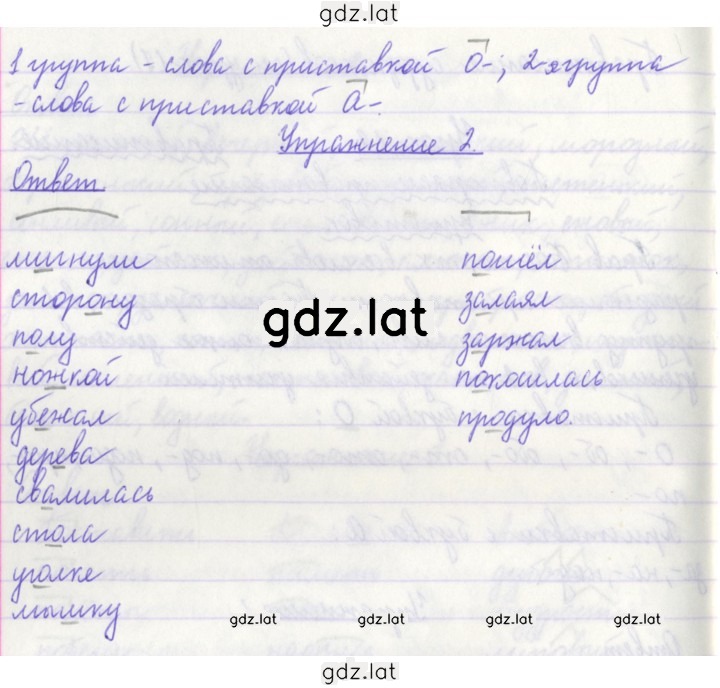 gdz.lat
1 группа - слова с приставкой О-; 2-я группа
- слова с приставкой А-.
Упражнение 2.
Ответ
мигнули пошёл
сторону залаял
полу заржал
ножкой покосилась
убежал продуло.
дерева
свалилась
стола
уголке
мышку
gdz.lat
gdz.lat gdz.lat gdz.lat gdz.lat
gdz.lat